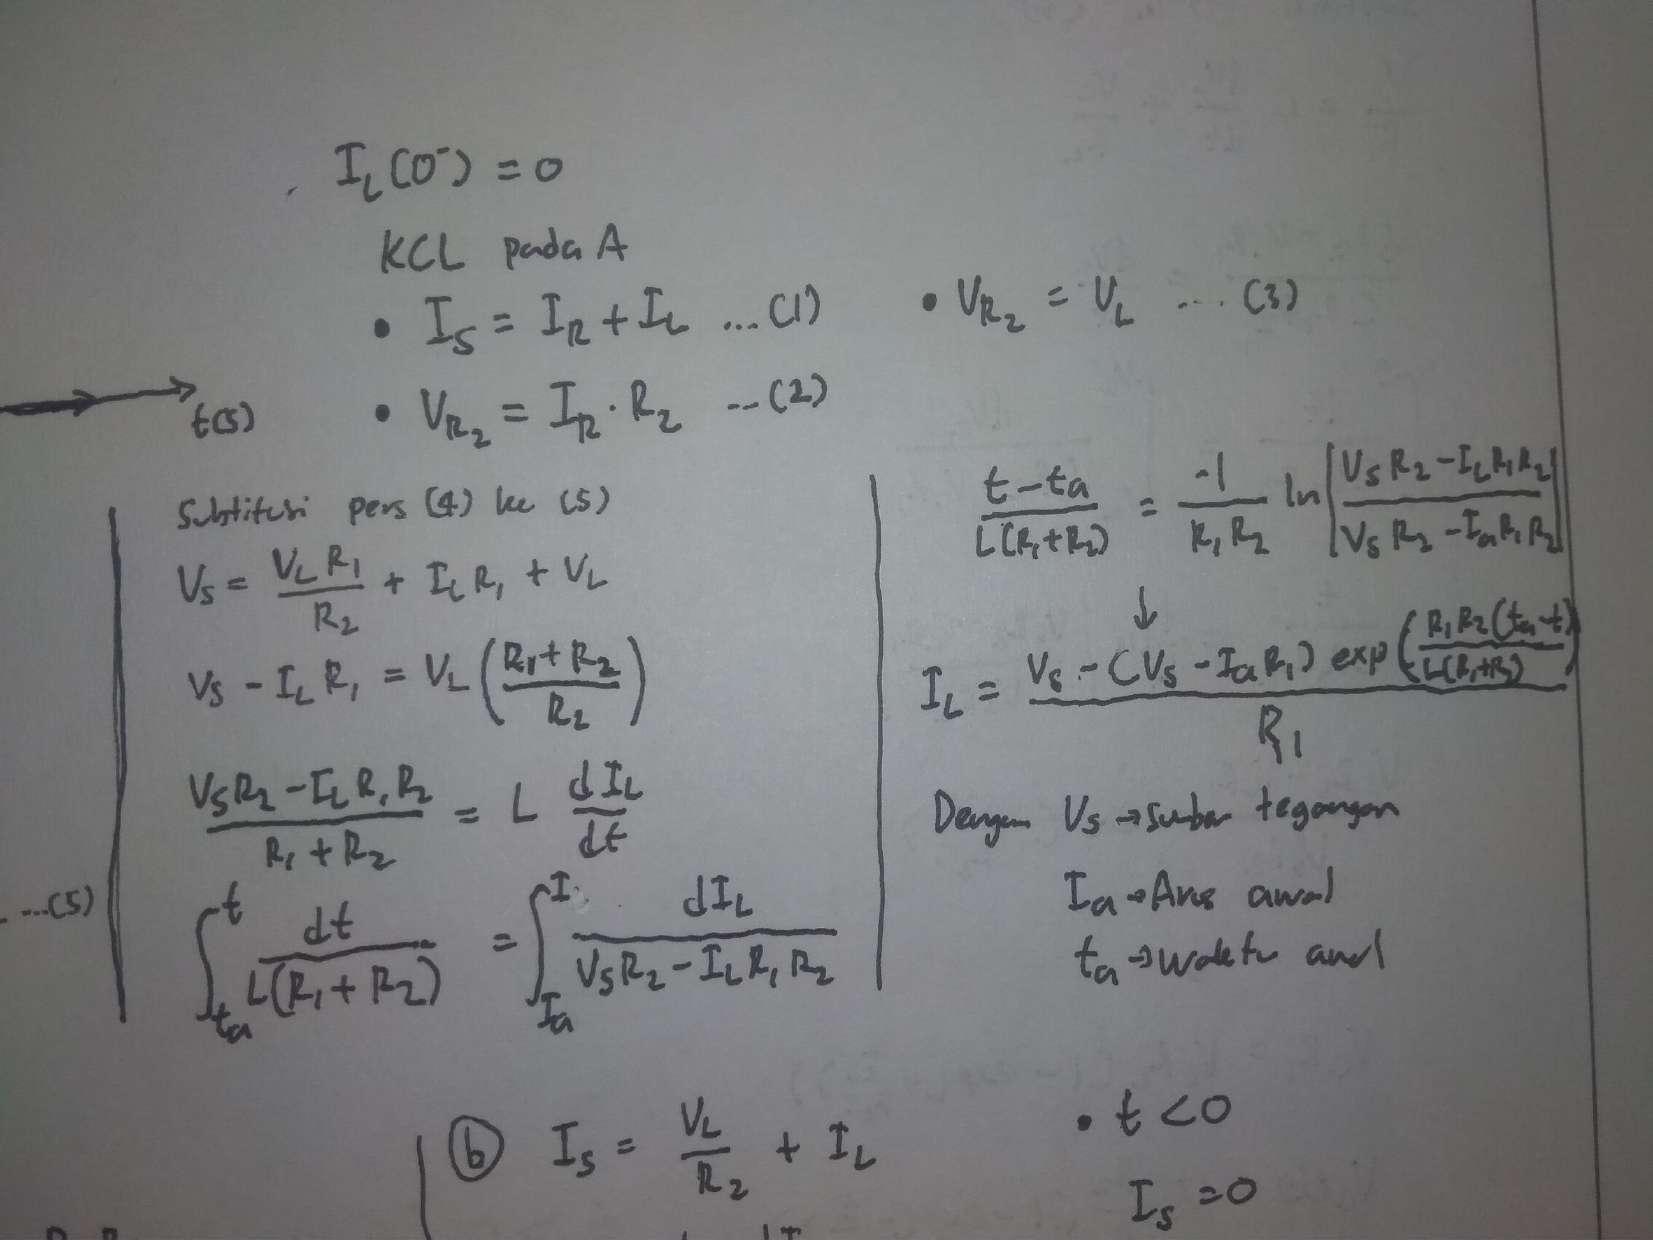 I_L(0⁻) = 0
KCL pada A
• I_S = I_R + I_L ...(1)
• V_R₂ = V_L .... (3)
• V_R₂ = I_R · R₂ ...(2)
t(s)
Subtitusi pers (4) ke (5)
V_S = V_L R₁ / R₂ + I_L R₁ + V_L
V_S - I_L R₁ = V_L ((R₁ + R₂) / R₂)
(V_S R₂ - I_L R₁ R₂) / (R₁ + R₂) = L dI_L / dt
∫_ta^t dt / (L(R₁ + R₂)) = ∫_Ia^I dI_L / (V_S R₂ - I_L R₁ R₂)
...(5)
(t - ta) / (L(R₁+R₂)) = -1 / (R₁ R₂) ln |(V_S R₂ - I_L R₁ R₂) / (V_S R₂ - I_a R₁ R₂)|
↓
I_L = (V_S - (V_S - I_a R₁) exp(R₁ R₂ (ta - t) / (L(R₁+R₂)))) / R₁
Dengan V_S → sumber tegangan
I_a → Arus awal
t_a → waktu awal
(b) I_S = V_L / R₂ + I_L
• t < 0
I_S = 0